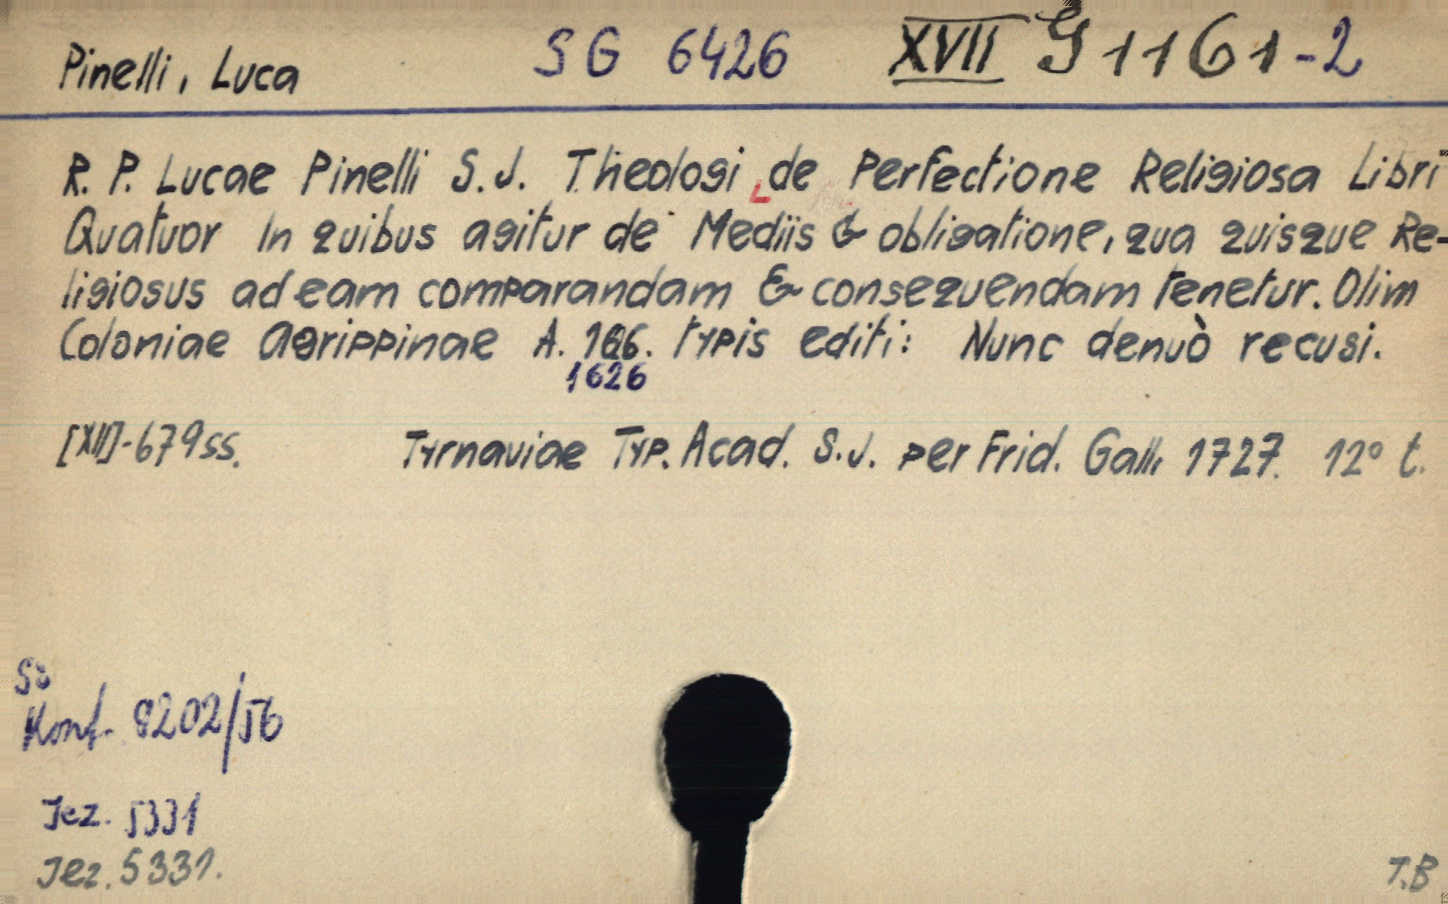 Pinelli, Luca SG 6426 XVII G 1161-2
R. P. Lucae Pinelli S.J. Theologi de Perfectione Religiosa Libri
Quatuor In quibus agitur de Mediis & obligatione, qua quisque Re-
ligiosus ad eam comparandam & consequendam tenetur. Olim
Coloniae Agrippinae A. 166. typis editi: Nunc denuò recusi.
1626
[XII]-679ss. Tyrnaviae Typ. Acad. S.J. per Frid. Gall. 1727. 12° t.
Konf. 8202/56
Jez. 5331
Jez. 5331.
T.B